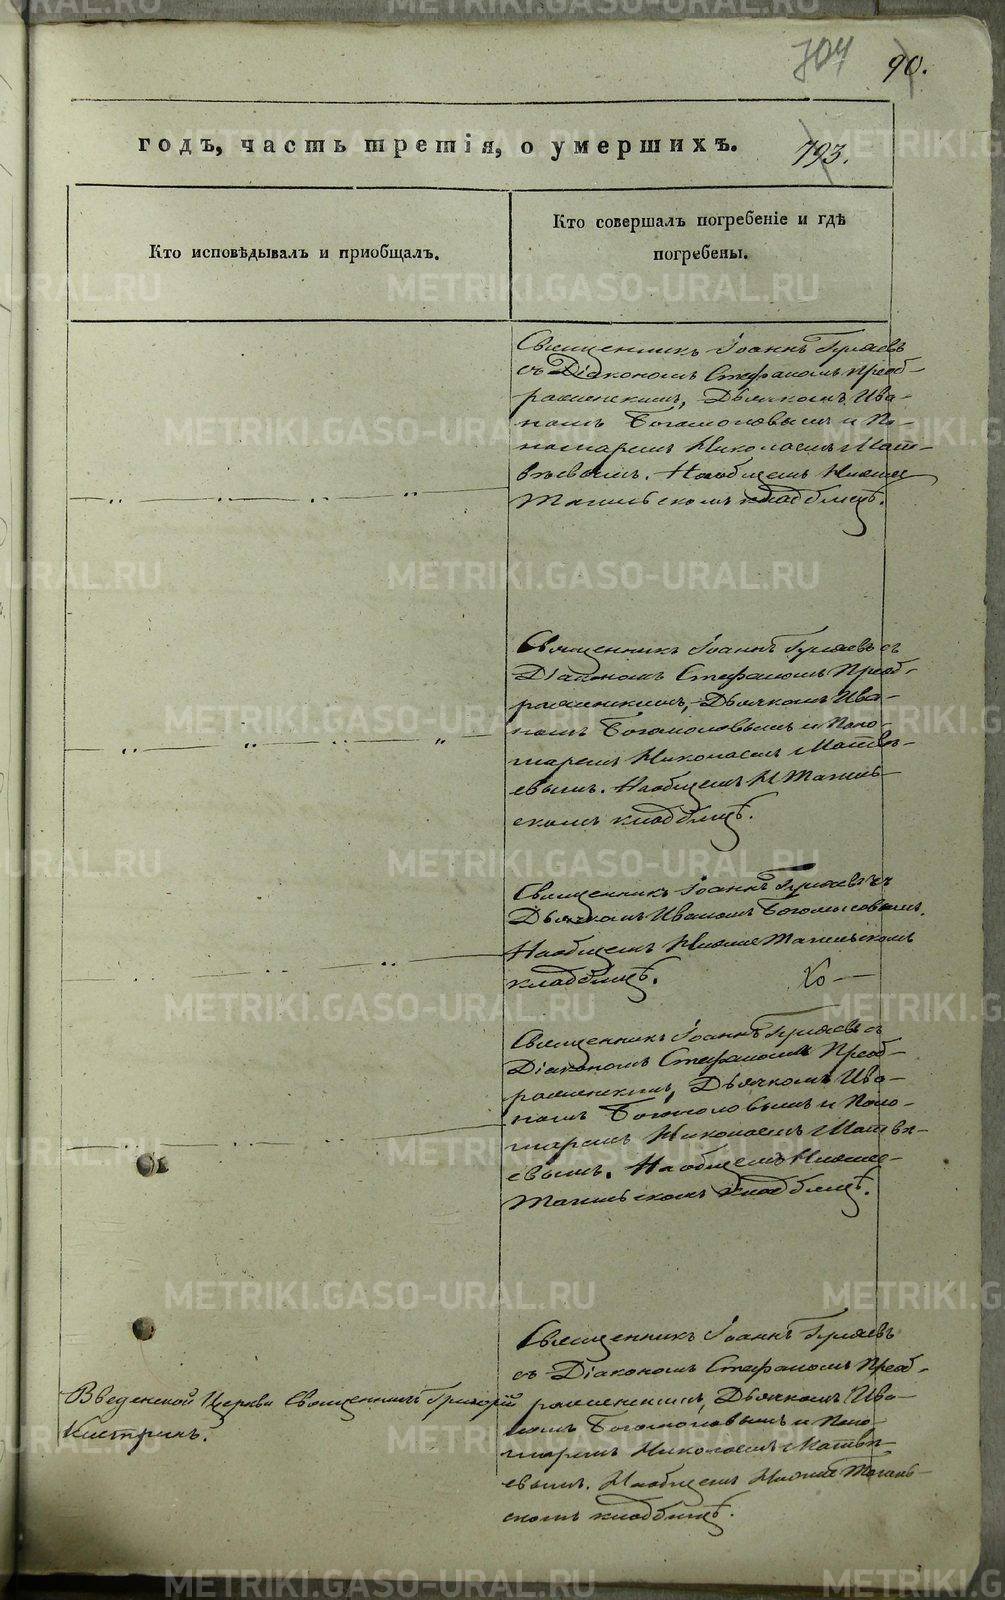 704 90.
годъ, часть третія, о умершихъ. 793.
Кто исповѣдывалъ и пріобщалъ.
Кто совершалъ погребеніе и гдѣ
погребены.
Священникъ Іоаннъ
съ Діакономъ Стефаномъ Преоб-
раженскимъ, Дьячкомъ Ива-
номъ Богомоловымъ и По-
номаремъ Николаемъ Мат-
вѣевымъ. На общемъ Нижне
Тагильскомъ кладбищѣ.
Священникъ Іоаннъ съ
Діакономъ Стефаномъ Преоб-
раженскимъ, Дьячкомъ Ива-
номъ Богомоловымъ и Поно-
маремъ Николаемъ Матвѣ-
евымъ. На общемъ Н Тагиль-
скомъ кладбищѣ.
Священникъ Іоаннъ съ
Дьячкомъ Иваномъ Богомоловымъ.
На общемъ Нижне Тагильскомъ
кладбищѣ.
Священникъ Іоаннъ съ
Діакономъ Стефаномъ Преоб-
раженскимъ, Дьячкомъ Ива-
номъ Богомоловымъ и Поно-
маремъ Николаемъ Матвѣ-
евымъ. На общемъ Нижне-
Тагильскомъ кладбищѣ.
Введенской Церкви Священникъ Григорій
Священникъ Іоаннъ
съ Діакономъ Стефаномъ Преоб-
раженскимъ, Дьячкомъ Ива-
номъ Богомоловымъ и Поно-
маремъ Николаемъ Матвѣ-
евымъ. На общемъ Нижне Тагиль-
скомъ кладбищѣ.
METRIKI.GASO-URAL.RU